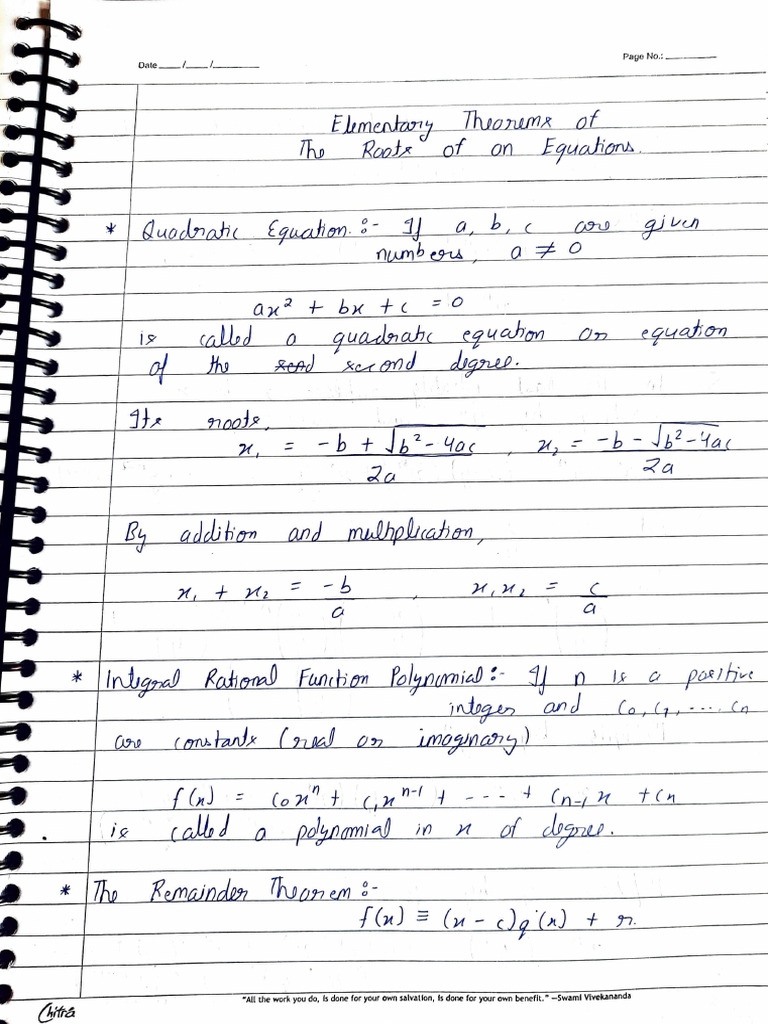 Date ___/___/______ Page No.: ________
Elementary Theorems of
The Roots of an Equations.
* Quadratic Equation :- If a, b, c are given
numbers, a ≠ 0
ax² + bx + c = 0
is called a quadratic equation or equation
of the second degree.
Its roots,
x₁ = (-b + √(b² - 4ac))/2a , x₂ = (-b - √(b² - 4ac))/2a
By addition and multiplication,
x₁ + x₂ = -b/a , x₁x₂ = c/a
* Integral Rational Function Polynomial :- If n is a positive
integer and c₀, c₁, .... cₙ
are constants (real or imaginary)
f(x) = c₀xⁿ + c₁xⁿ⁻¹ + ---- + cₙ₋₁x + cₙ
is called a polynomial in x of degree.
* The Remainder Theorem :-
f(x) ≡ (x - c)q(x) + r.
"All the work you do, is done for your own salvation, is done for your own benefit." —Swami Vivekananda
Chitra